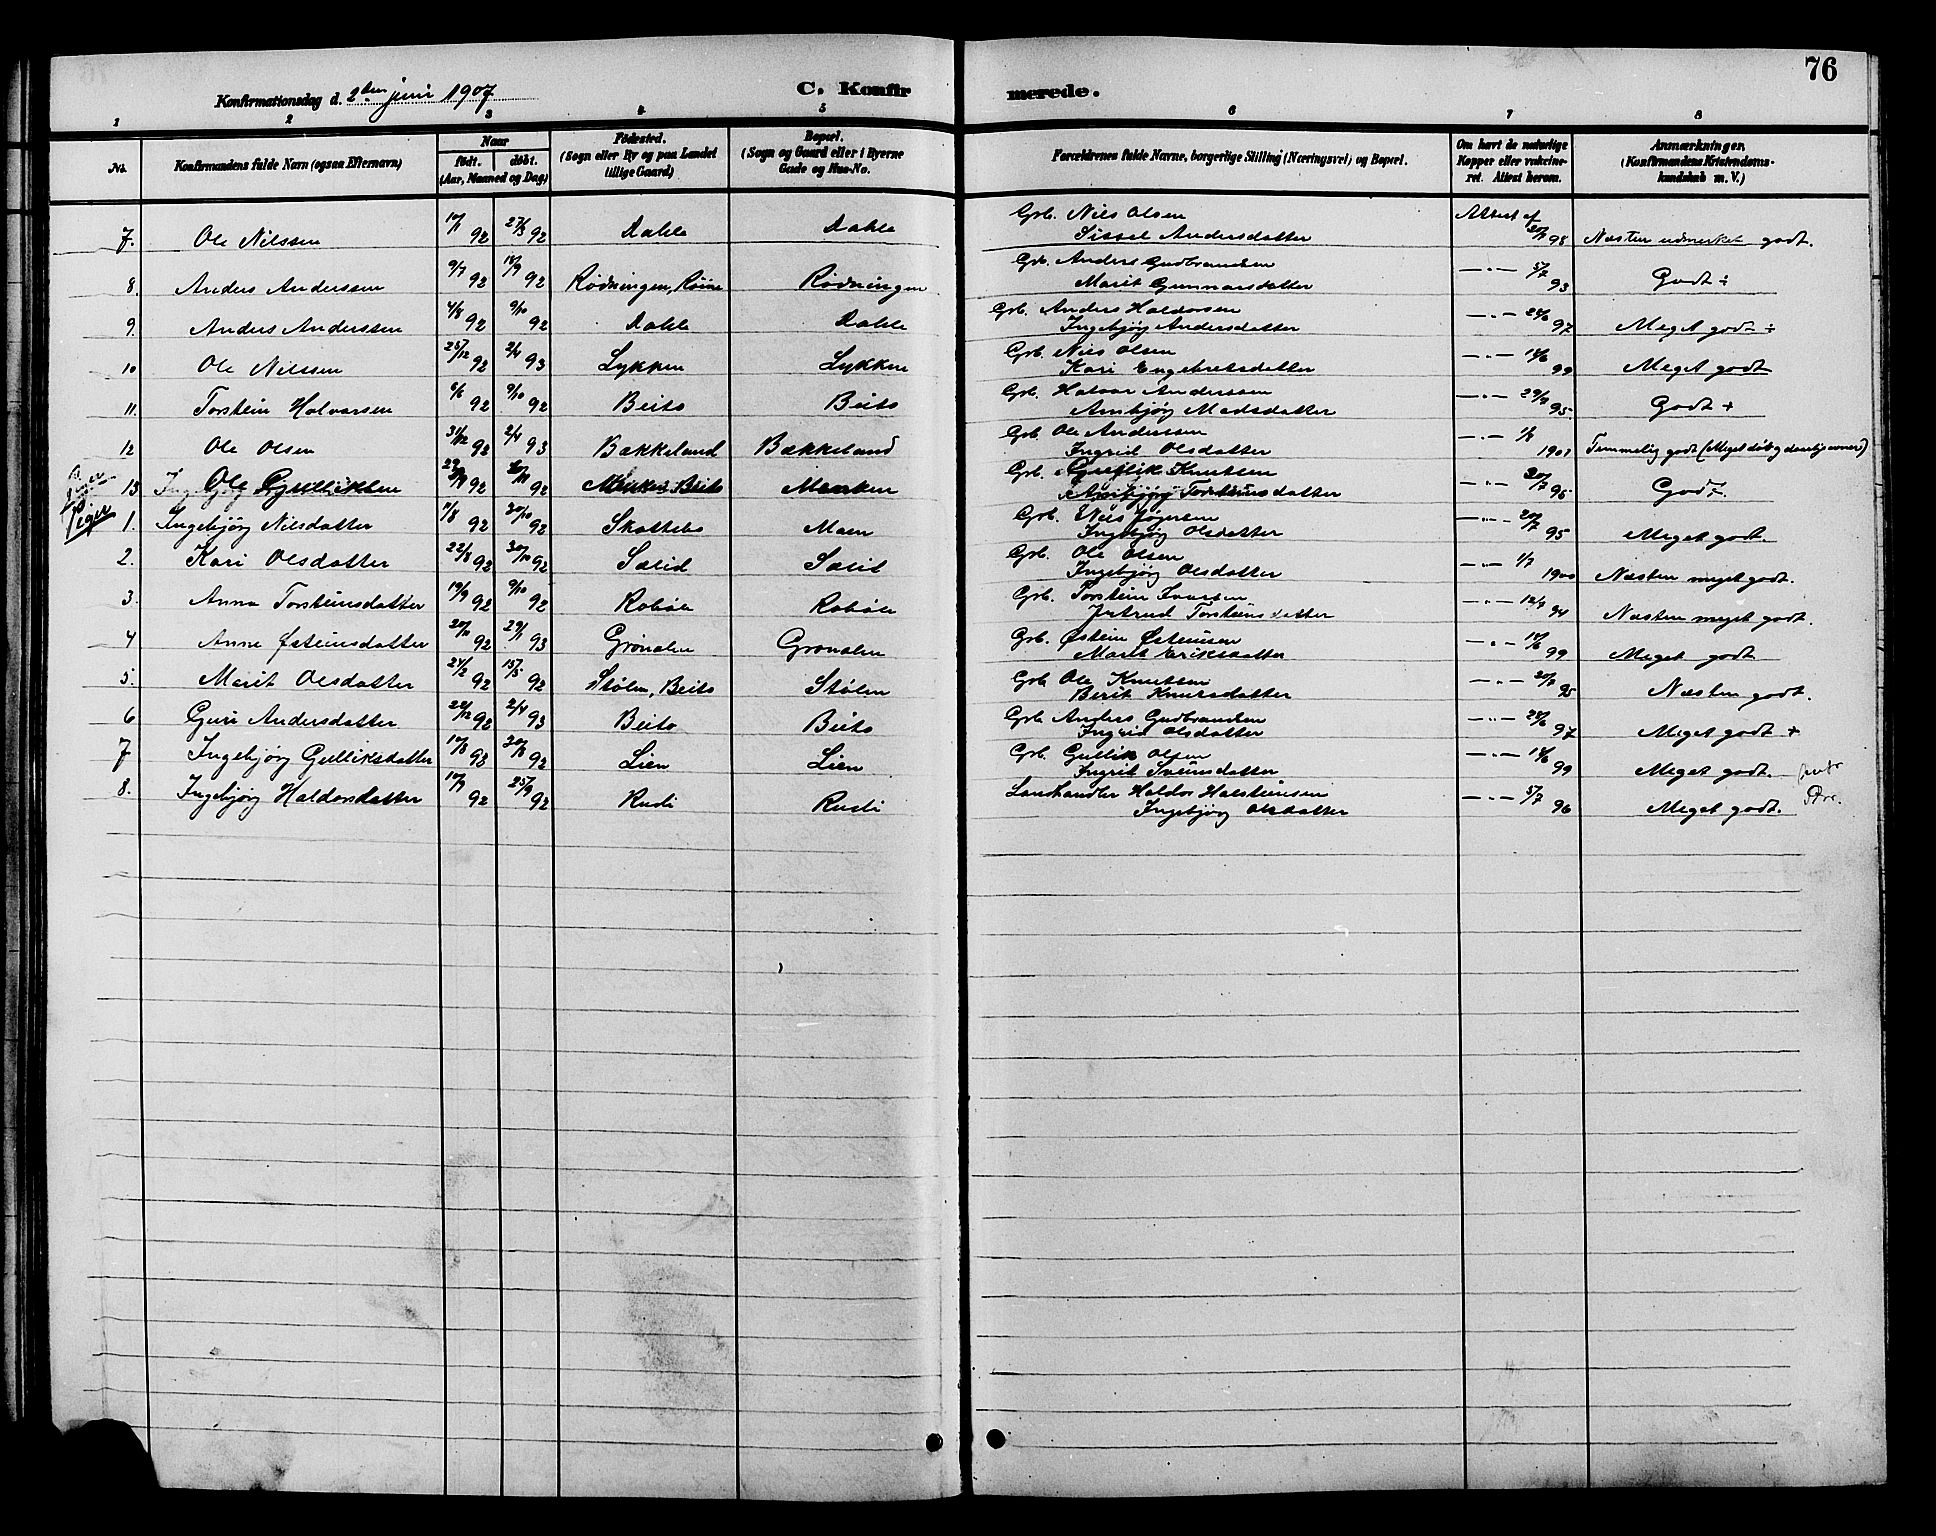 76
Konfirmationsdag d. 2den juni 1907 C. Konfirmerede.
1 2 3 4 5 6 7 8
No. Konfirmandens fulde Navn (ogsaa Efternavn) Naar født. døbt. (Aar, Maaned og Dag) Fødested. (Sogn eller By og paa Landet tillige Gaard) Bopæl. (Sogn og Gaard eller i Byerne Gade og Hus-No. Forældrenes fulde Navne, borgerlige Stilling (Næringsvei) og Bopæl. Om havt de naturlige Kopper eller vaksineret. Attest herom. Anmærkninger. (Konfirmandens Kristendomskundskab m. V.)
7. Ole Nilssen 92 27/3 92 Dahle Dahle Grb. Nils Olsen Sissel Andersdatter Attest af 98 Næsten udmerket godt.
8. Anders Anderssen 9/7 92 18/9 92 Rødningen, Røine Rødningen Grb. Anders Gudbrandsen Marit Gunnarsdatter —"— 5/7 93 Godt ÷
9. Anders Anderssen 4/8 92 9/10 92 Dahle Dahle Grb. Anders Haldorsen Ingebjørg Andersdatter —"— 97 Meget godt ÷
10 Ole Nilssen 25/12 92 2/4 93 Lykken Lykken Grb. Nils Olsen Kari Engebretsdatter —"— 99 Meget godt
11. Torstein Halvorsen 6/6 92 9/10 92 Beito Beito Grb. Halvor Anderssen Ambjøg Madsdatter —"— 95. Godt +
12 Ole Olsen 31/12 92 2/4 93 Bakkeland Bækkeland Grb. Ole Anderssen Ingrid Olsdatter —"— 1901 Temmelig godt (Meget
13 Ole Gulliksen 92 92 Beito Moaken Grb. Gullik Knutsen Ambjøg Torsteinsdatter —"— 95 Godt.
Piger
1. Ingebjørg Nilsdatter 92 30/10 92 Skattebo Moen Grb. Nils Ingebjøg Olsdatter —"— 95 Meget godt.
2. Kari Olsdatter 22/8 92 30/10 92 Sælid Sælid Grb. Ole Olsen Ingebjørg Olsdatter —"— 1/7 1900 Næsten meget godt.
3. Anna Torsteinsdatter 19/9 92 9/10 92 Robøle Robøle Grb. Torstein Ivarsen Jutrud Torsteinsdatter —"— 94 Næsten meget godt.
4 Anne Østeinsdatter 92 29/1 93 Grønolen Grønolen Grb. Østein Østeinsen Marit Eriksdatter —"— 99 Meget godt
5. Marit Olsdatter 24/2 92 15/5 92 Stølen, Beito Stølen Grb Ole Knutsen Berit Knutsdatter —"— 95 Næsten godt.
6 Guri Andersdatter 22/12 92 2/4 93 Beito Beito Grb Anders Gudbrandsen Ingrid Olsdatter —"— 97 Meget godt +
7 Ingebjørg Gulliksdatter 92 92 Lien Lien Grb. Gullik Olsen Ingrid Sveinsdatter —"— 99 Meget godt.
8. Ingebjørg Haldorsdatter 92 25/9 92 Rudi Rudi Landhandler Haldor Halsteinsen Ingebjørg Olsdatter —"— 5/7 96 Meget godt.